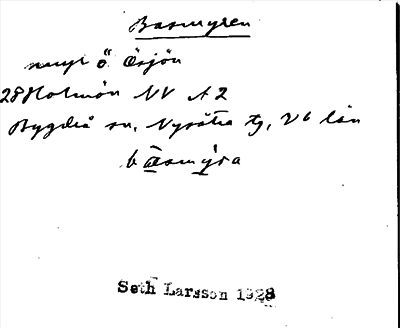 Basmyren
myr ö Åsjön
28 Holmön NV A2
Bygdeå sn, Nysätra tg, Vb län
båsmýra
Seth Larsson 1928